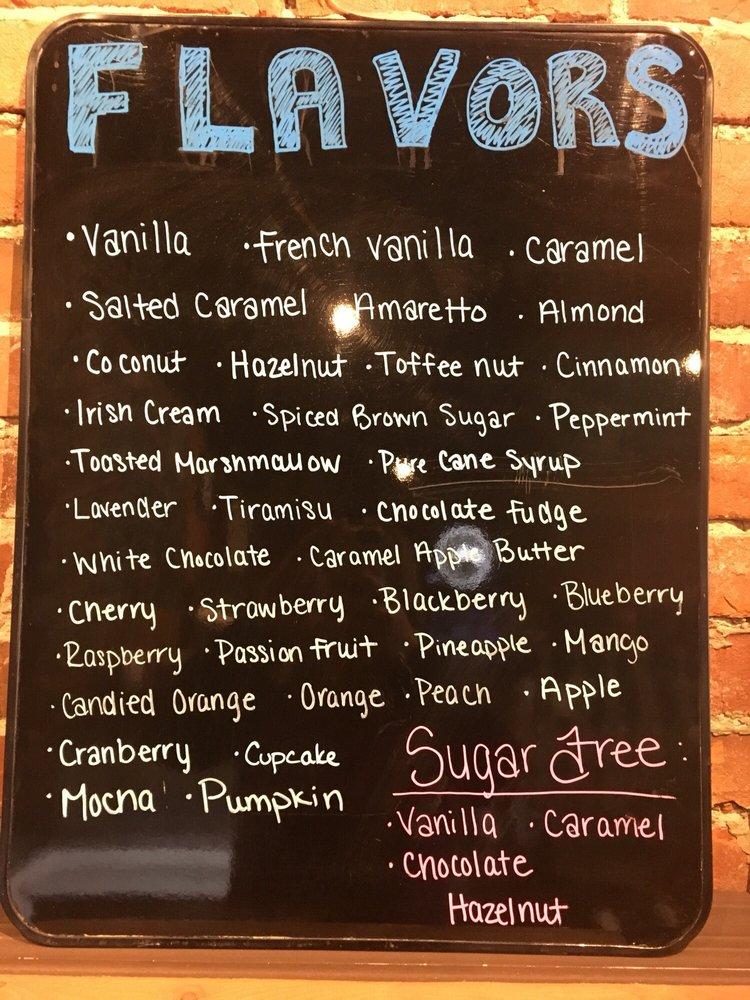 FLAVORS
·Vanilla ·French Vanilla ·Caramel
·Salted Caramel Amaretto ·Almond
·Coconut ·Hazelnut ·Toffee nut ·Cinnamon
·Irish Cream ·Spiced Brown Sugar ·Peppermint
·Toasted Marshmallow ·Pure Cane Syrup
·Lavender ·Tiramisu ·Chocolate Fudge
·White Chocolate ·Caramel Apple Butter
·Cherry ·Strawberry ·Blackberry ·Blueberry
·Raspberry ·Passion fruit ·Pineapple ·Mango
·Candied Orange ·Orange ·Peach ·Apple
·Cranberry ·Cupcake
·Mocha ·Pumpkin
Sugar Free:
·Vanilla ·Caramel
·Chocolate
Hazelnut